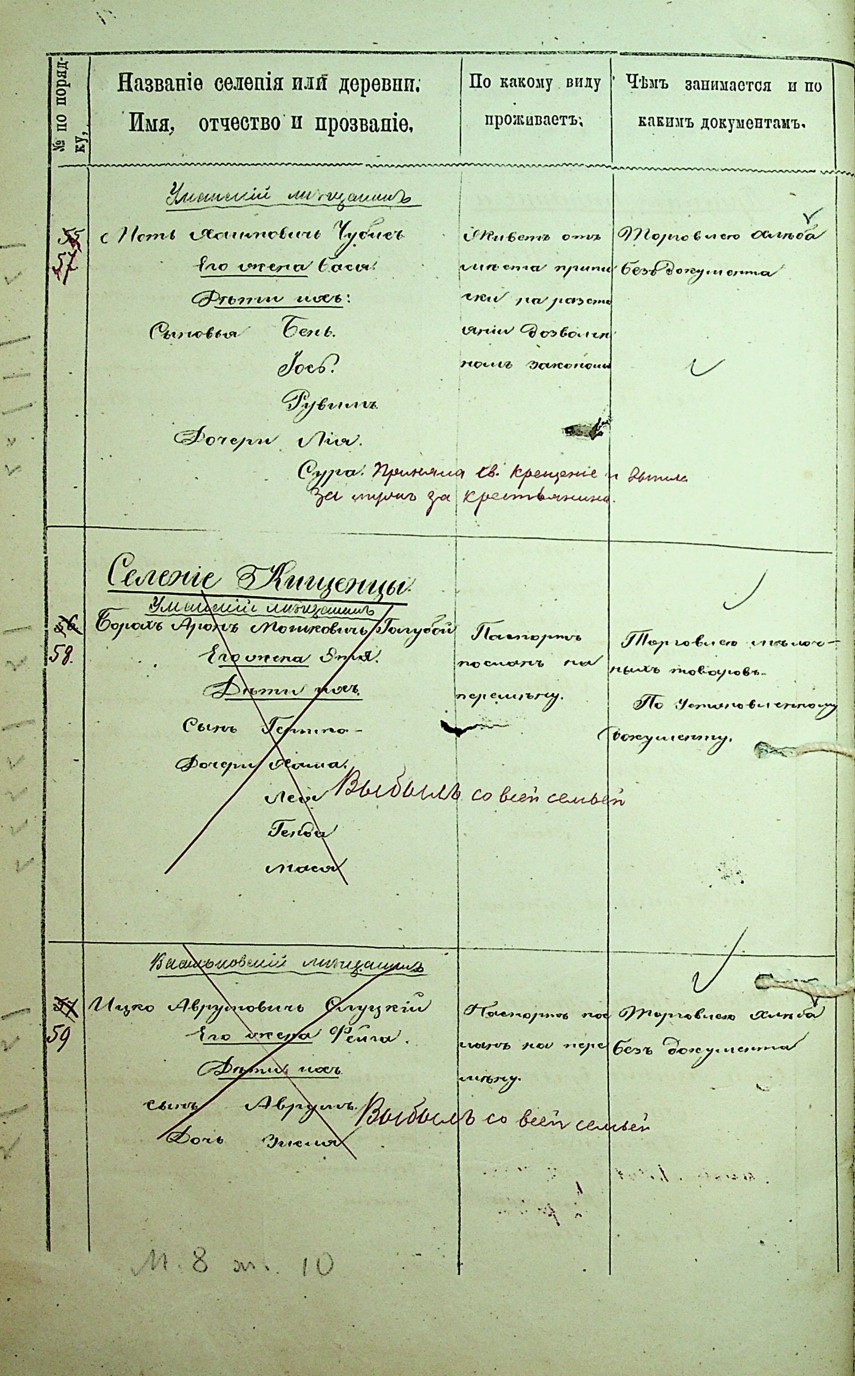 № по поряд-
ку,
Названіе селенія или деревни.
Имя, отчество и прозваніе.
По какому виду
проживаетъ.
Чѣмъ занимается и по
какимъ документамъ.
Уманскій мѣщанинъ
55
57
Хаимовичъ
Его жена Бася.
Дѣти ихъ:
Сыновья Бень.
Іось.
Рувимъ
Дочери Лія.
Сура. Приняла св. крещеніе и вышла
за мужъ за крестьянина.
Живетъ отъ
мѣста припи
ски на разсто
яніи дозволен
номъ закономъ
Торговлею хлѣба
безъ документа
Селеніе Кищенцы.
Уманскій мѣщанинъ
56
58.
Борахъ Аронъ Мошковичъ Голубой
Его жена
Дѣти ихъ
Сынъ
Дочери
Лея
Генда
Мася
Выбылъ со всей семьей
Паспортъ
посланъ на
перемѣну.
Торговлею мѣлоч-
ныхъ товаровъ.
По установленному
документу.
Васьковскій мѣщанинъ
57
59
Ицко Аврумовичъ Слуцкій
Его жена Фейга.
Дѣти ихъ
сынъ Аврумъ
Дочь
Выбылъ со всей семьей
Паспортъ пос
ланъ на пере
мѣну.
Торговлею хлѣба
безъ документа
М. 8 т. 10